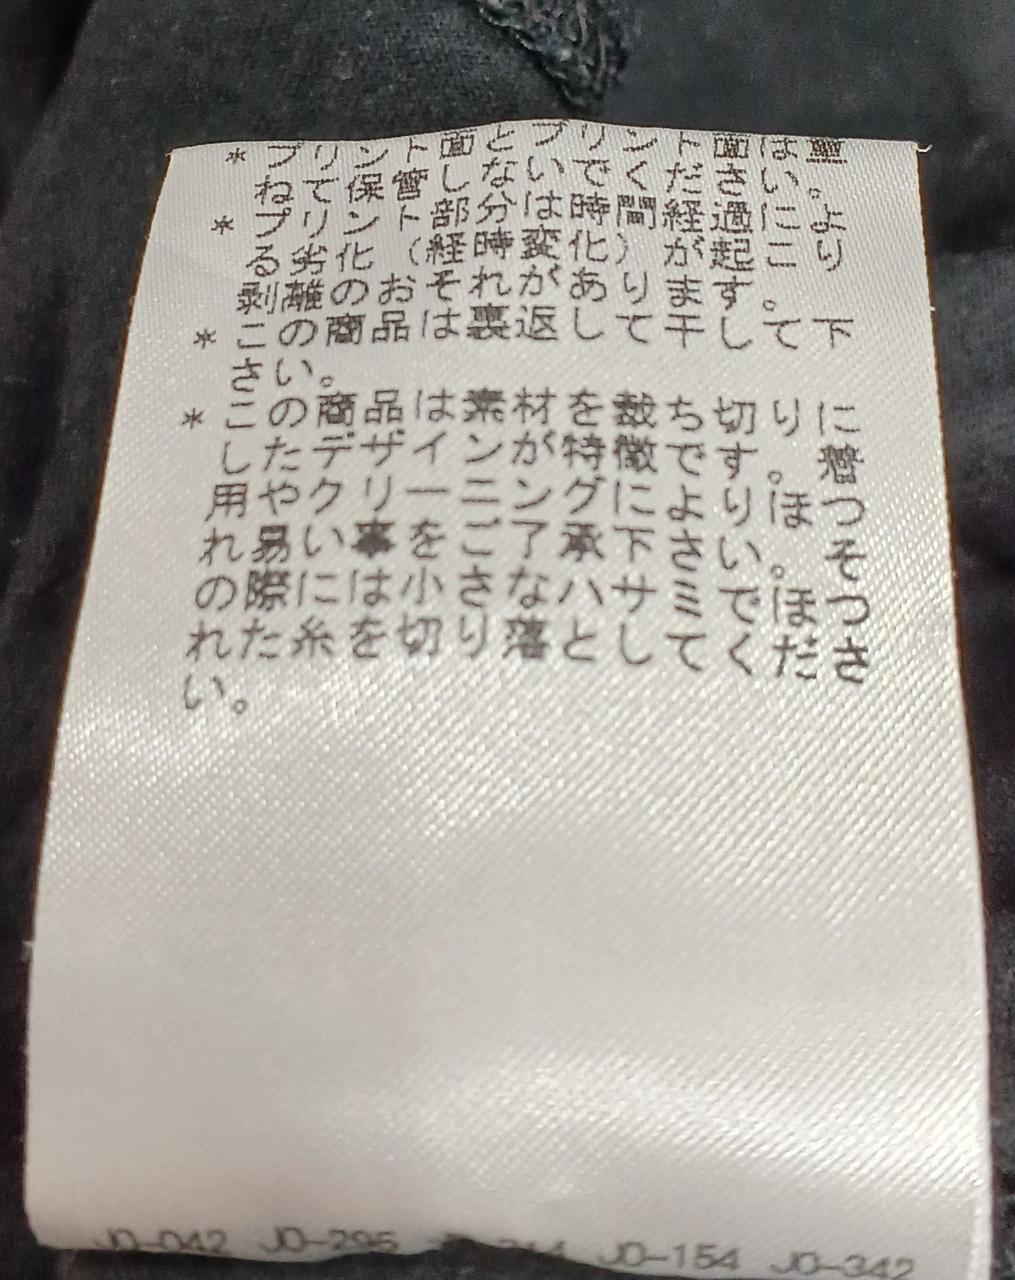 *プリント面とプリント面は重
ねて保管しないでください。
*プリント部分は時間経過によ
る劣化(経時変化)が起こり
剥離のおそれがあります。
*この商品は裏返して干して下
さい。
*この商品は素材を裁ち切りに
したデザインが特徴です。着
用やクリーニングによりほつ
れ易い事をご了承下さい。そ
の際には小さなハサミでほつ
れた糸を切り落としてくださ
い。
JO-042 JO-295 JO-314 JO-154 JO-342